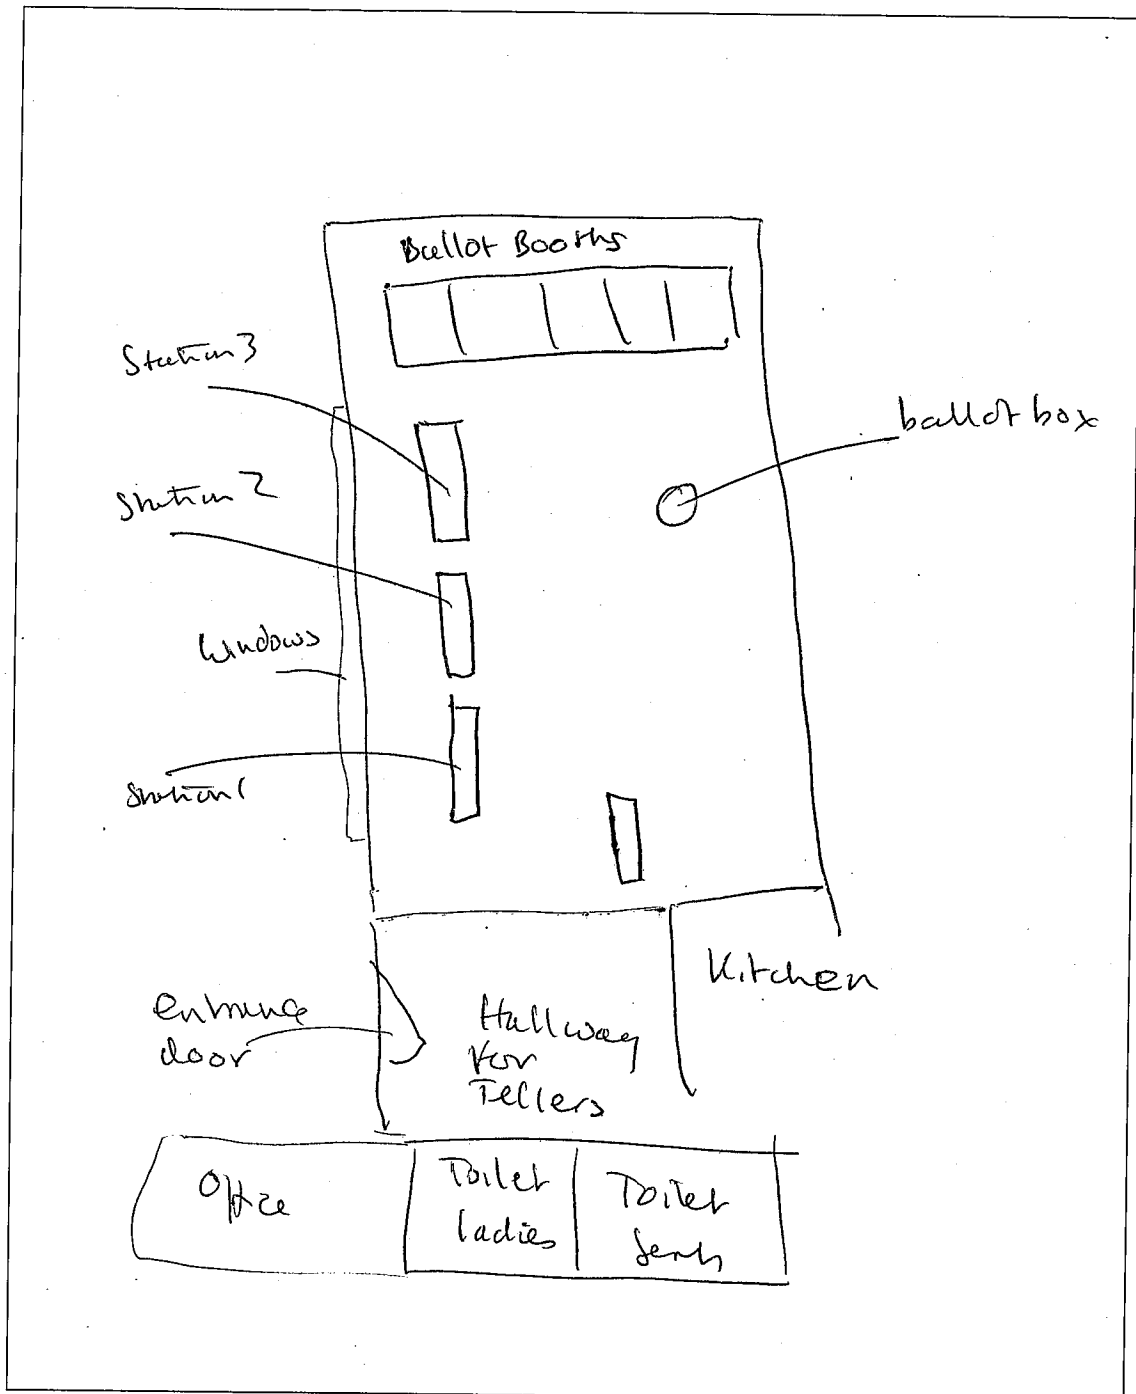 Ballot Booths
Station 3
ballot box
Station 2
Windows
Station 1
Kitchen
entrance
door
Hallway
for
Tellers
Office
Toilet
ladies
Toilet
Gents